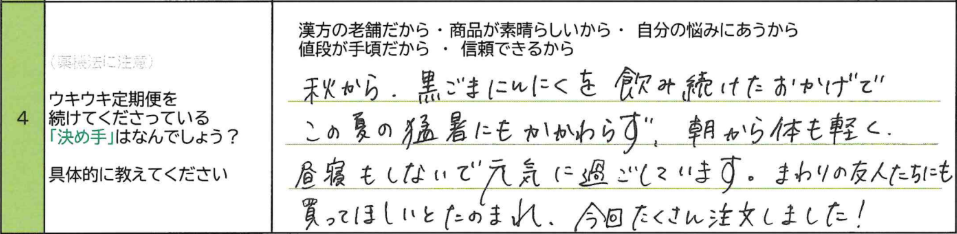 4
(薬機法に注意)
ウキウキ定期便を
続けてくださっている
「決め手」はなんでしょう？
具体的に教えてください
漢方の老舗だから・商品が素晴らしいから・ 自分の悩みにあうから
値段が手頃だから ・ 信頼できるから
秋から、黒ごまにんにくを 飲み続けたおかげで
この夏の猛暑にもかかわらず、朝から体も軽く、
昼寝もしないで元気に過ごしています。まわりの友人たちにも
買ってほしいとたのまれ、今回たくさん注文しました!